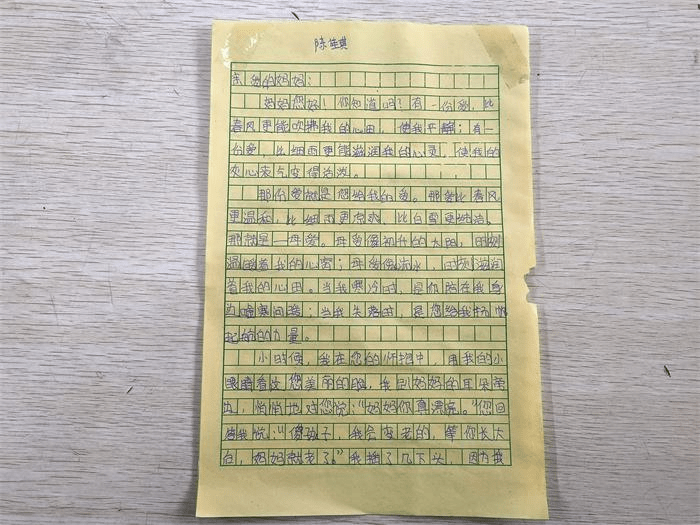 陈佳琪
亲爱的妈妈：
妈妈您好！你知道吗？有一份爱，比
春风更能吹拂我的心田，使我平静；有一
份爱，比细雨更能滋润我的心灵，使我的
灰心丧气变得活泼。
那份爱就是您给我的爱。那爱比春风
更温和，比细雨更凉爽，比白雪更纯洁。
那就是一母爱。母爱像初升的太阳，时刻
温暖着我的心窝；母爱像流水，时刻滋润
着我的心田。当我寒冷时，是你陪在我身
边嘘寒问暖；当我失落时，是您给我扬帆
起航的力量。
小时候，我在您的怀抱中，用我的小
眼睛看这您美丽的脸，我趴妈妈的耳朵旁
边，悄悄地对您说：“妈妈你真漂亮。”您回
我说：“傻孩子，我会变老的，等你长大
后，妈妈就老了。”我摇了几下头，因为我